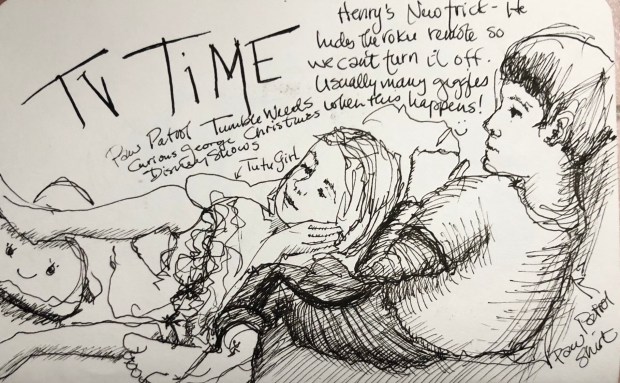 TV TIME
Henry's New trick - He
hides the roku remote so
we can't turn it off.
Usually many giggles
when this happens!
Paw Patrol Tumble Weeds
Curious george Christmas
Disney Shows
Tutu Girl
Paw Patrol
Shirt